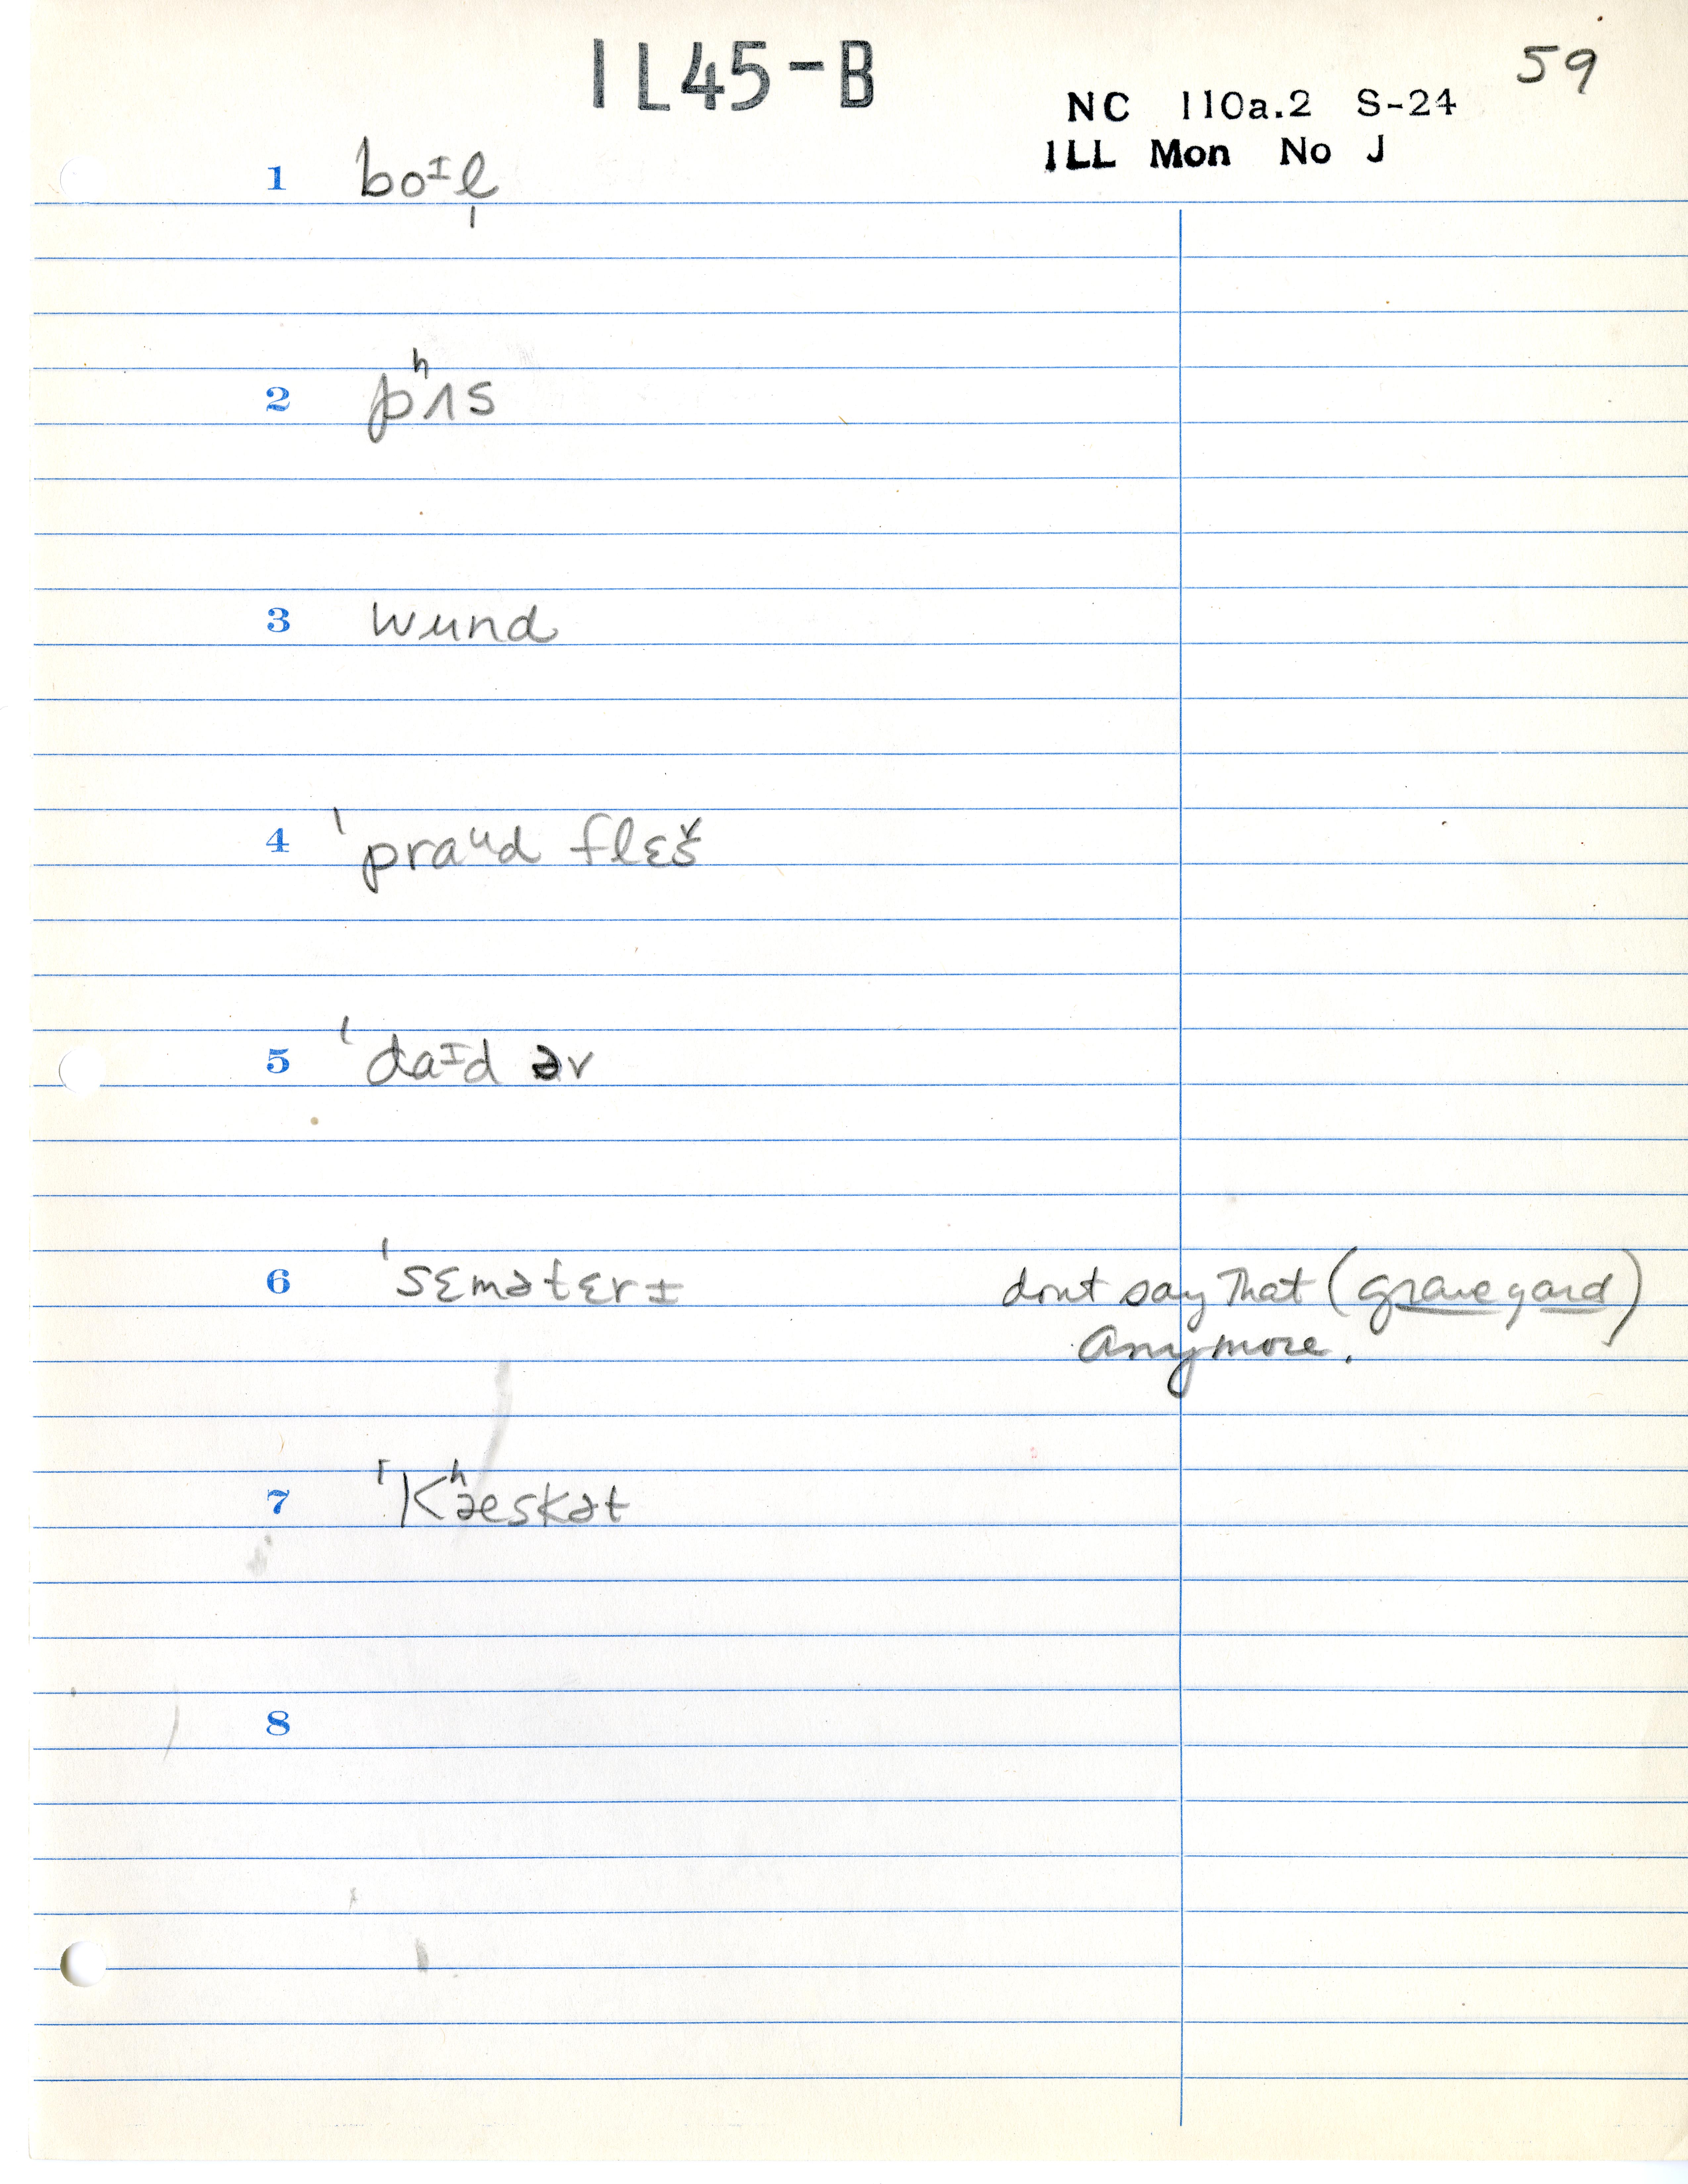 IL45-B
59
NC 110a.2 S-24
ILL Mon No J
1 boᶦl̩
2 pʰʌs
3 wund
4 ˈpraᵘd flɛš
5 ˈdaᶦd əv
6 ˈsɛmətɛrɪ dont say that (graveyard)
anymore.
7 ˈkʰæskət
8